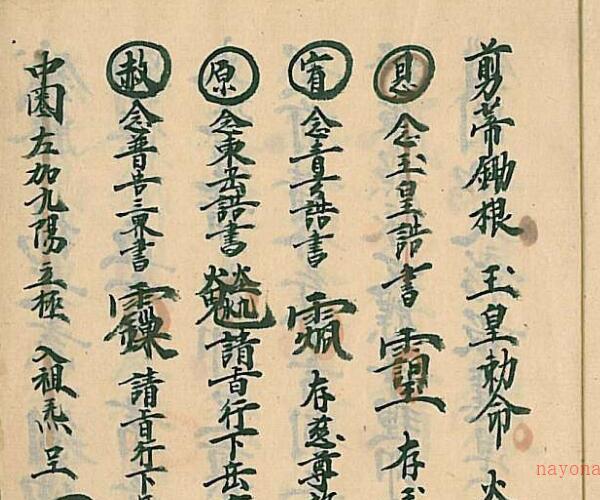 剪蒂鋤根 玉皇勅命 火
恩 念玉皇誥書 存
宥 念青玄誥書 存慈尊
原 念東岳誥書 請旨行下岳
赦 念普告三界書 請旨行下
中圈左加九陽立極 入祖炁呈
nayona